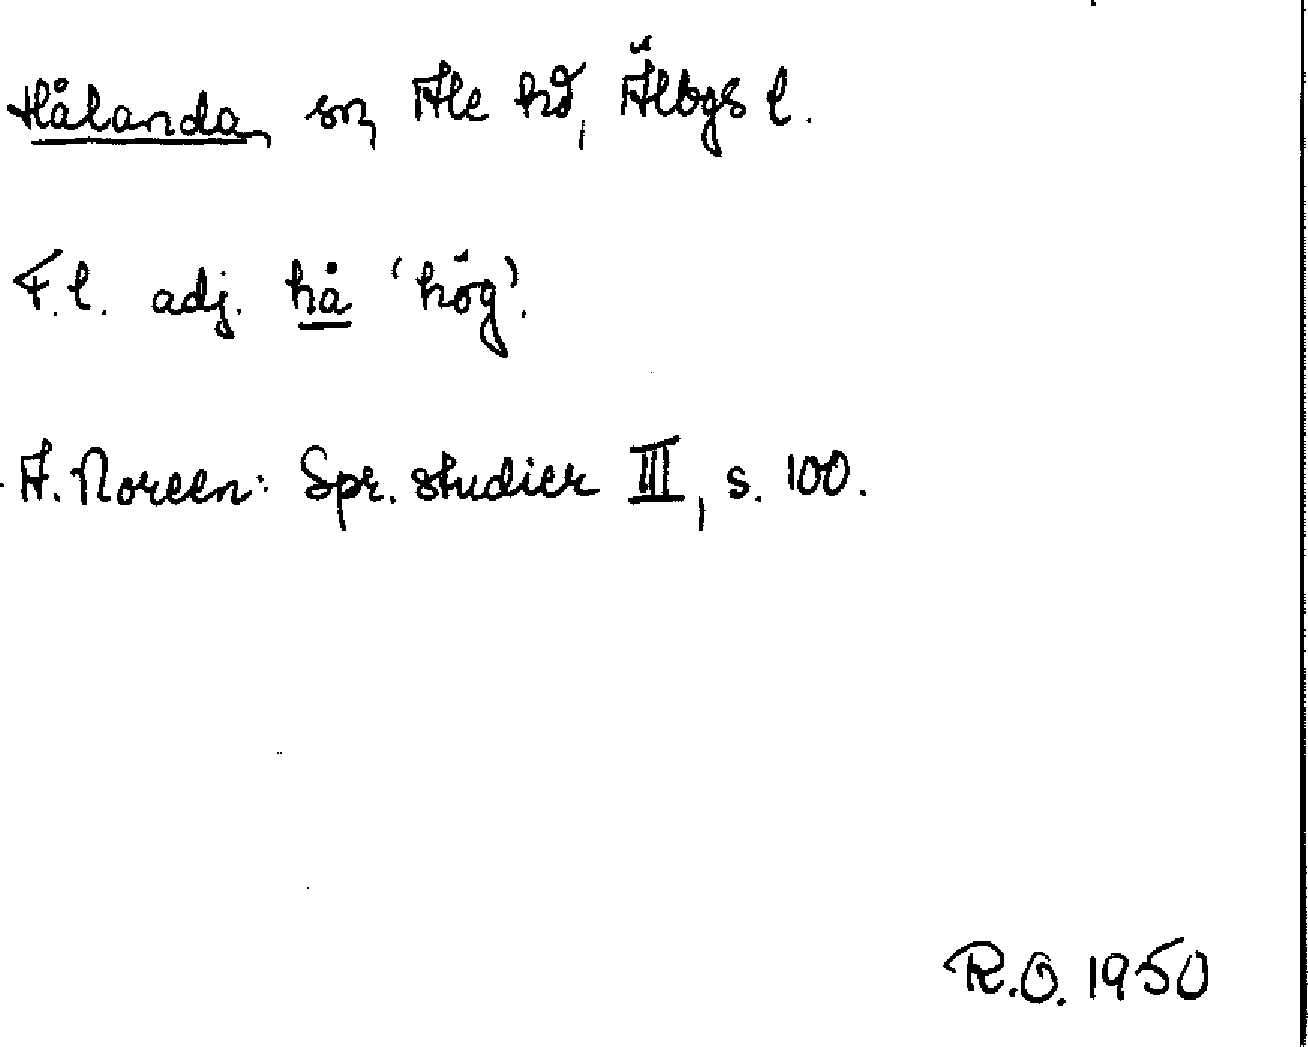 Hålanda, sn, Ale hd, Älvbgs l.
F.l. adj. hå 'hög'.
A. Noreen: Spr. studier III, s. 100.
R.O. 1950